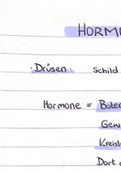 HORMO
· Drüsen: Schild
Hormone = Boten
Gew
Kreisl
Dort